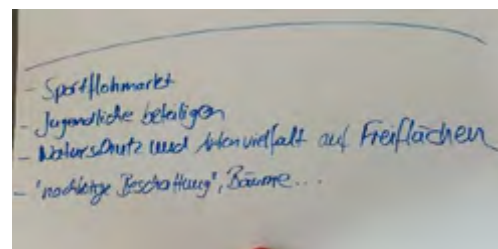 - Sportflohmarkt
- Jugendliche beteiligen
- Naturschutz und Artenvielfalt auf Freiflächen
- "nachhaltige Beschattung", Bäume...